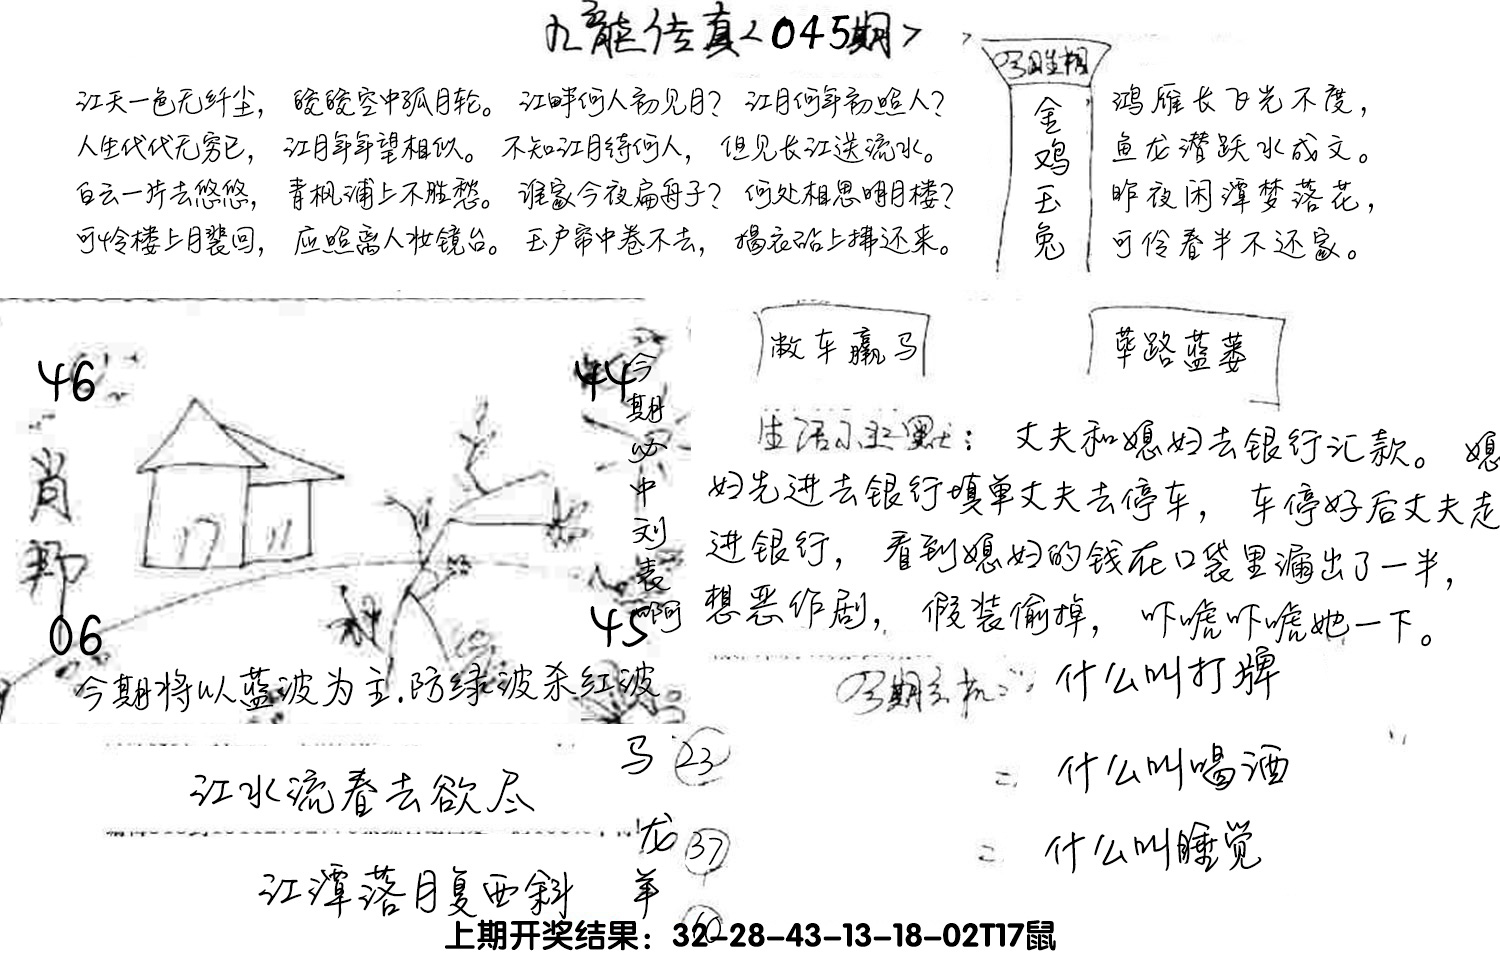 九龙传真<045期>
江天一色无纤尘，皎皎空中孤月轮。江畔何人初见月？江月何年初照人？
人生代代无穷已，江月年年望相似。不知江月待何人，但见长江送流水。
白云一片去悠悠，青枫浦上不胜愁。谁家今夜扁舟子？何处相思明月楼？
可怜楼上月裴回，应照离人妆镜台。玉户帘中卷不去，捣衣砧上拂还来。
金鸡玉兔
鸿雁长飞光不度，
鱼龙潜跃水成文。
昨夜闲潭梦落花，
可怜春半不还家。
46
44
肖
06
45
今期必中刘表啊
今期将以蓝波为主.防绿波杀红波
敝车羸马
荜路蓝蒌
生活小幽默：丈夫和媳妇去银行汇款。媳
妇先进去银行填单丈夫去停车，车停好后丈夫走
进银行，看到媳妇的钱在口袋里漏出了一半，
想恶作剧，假装偷掉，吓唬吓唬她一下。
什么叫打牌
什么叫喝酒
什么叫睡觉
江水流春去欲尽
江潭落月复西斜
马 23
龙 37
羊
上期开奖结果：32-28-43-13-18-02T17鼠